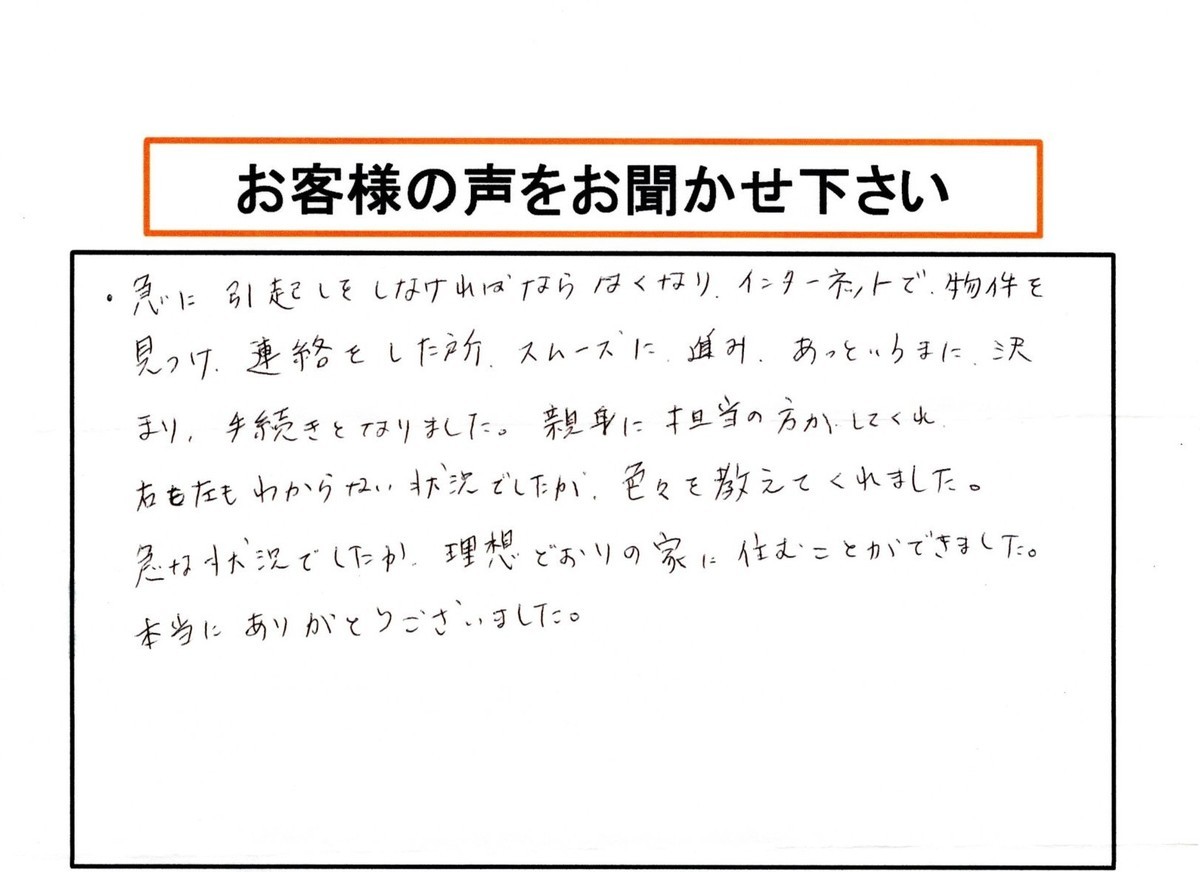 お客様の声をお聞かせ下さい
・急に引起しをしなければならなくなり、インターネットで、物件を
見つけ、連絡をした所、スムーズに、進み、あっというまに、決
まり、手続きとなりました。親身に担当の方がしてくれ、
右も左もわからない状況でしたが、色々を教えてくれました。
急な状況でしたが、理想どおりの家に住むことができました。
本当にありがとうございました。